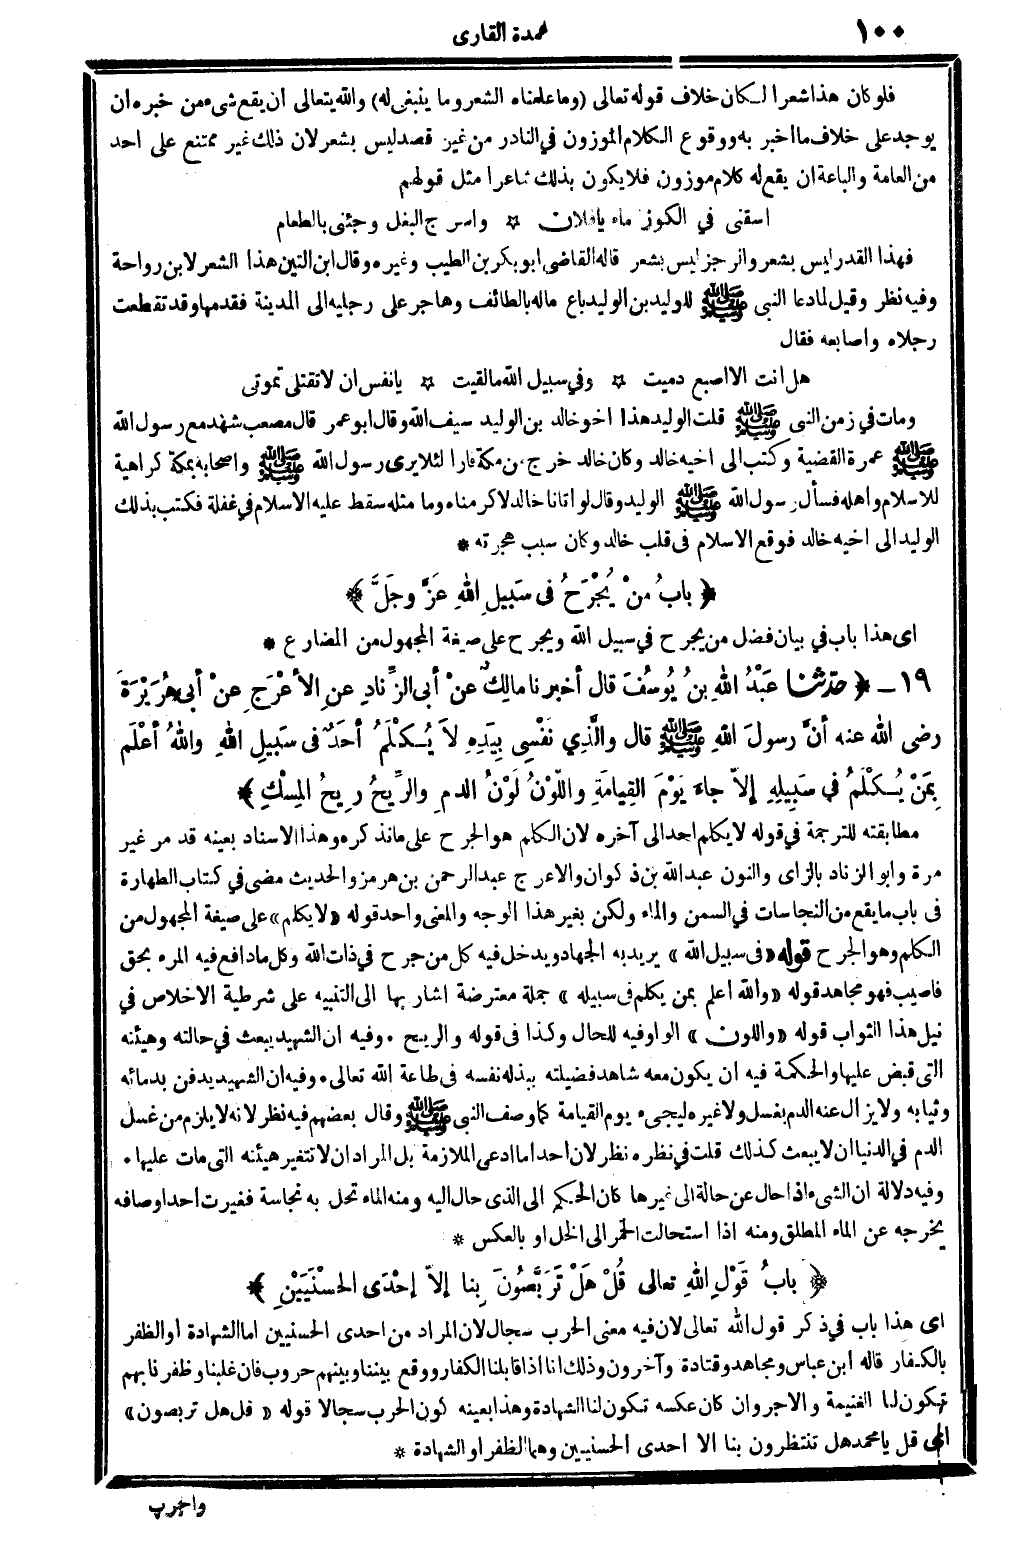 ١٠٠
عمدة القارى
فلو كان هذا شعرا لكان خلاف قوله تعالى (وما علمناه الشعر وما ينبغى له) والله يتعالى ان يقع شىء من خبره ان
يوجد على خلاف ما اخبر به ووقوع الكلام الموزون في النادر من غير قصد ليس بشعر لان ذلك غير ممتنع على احد
من العامة والباعة ان يقع له كلام موزون فلا يكون بذلك شاعرا مثل قولهم
اسقنى في الكوز ماء يافلان ☆ واسرج البغل وجئنى بالطعام
فهذا القدر ليس بشعر والرجز ليس بشعر قاله القاضى ابو بكر بن الطيب وغيره وقال ابن التين هذا الشعر لابن رواحة
وفيه نظر وقيل لما دعا النبى ﷺ للوليد بن الوليد باع ماله بالطائف وهاجر على رجليه الى المدينة فقدمها وقد تقطعت
رجلاه واصابعه فقال
هل انت الا اصبع دميت ☆ وفي سبيل الله ما لقيت ☆ يانفس ان لا تقتلى تموتى
ومات في زمن النبى ﷺ قلت الوليد هذا اخو خالد بن الوليد سيف الله وقال ابو عمر قال مصعب شهد مع رسول الله
ﷺ عمرة القضية وكتب الى اخيه خالد وكان خالد خرج من مكة فارا لئلا يرى رسول الله ﷺ واصحابه بمكة كراهية
للاسلام واهله فسأل رسول الله ﷺ الوليد وقال لو اتانا خالد لاكرمناه وما مثله سقط عليه الاسلام في غفلة فكتب بذلك
الوليد الى اخيه خالد فوقع الاسلام فى قلب خالد وكان سبب هجرته *
﴿ بابُ منْ يُجْرَحُ فى سَبِيلِ اللهِ عَزَّ وجَلَّ ﴾
اى هذا باب في بيان فضل من يجرح في سبيل الله ويجرح على صيغة المجهول من المضارع *
١٩ ـ ﴿ حدثنا عَبْدُ اللهِ بنُ يُوسُفَ قال أخبرنا مالِكٌ عنْ أبى الزِّنادِ عنِ الأعْرَجِ عنْ أبى هُرَيْرَةَ
رضى الله عنه أنَّ رسولَ اللهِ ﷺ قال والَّذِي نَفْسِى بِيَدِهِ لاَ يُكْلَمُ أحَدٌ فى سَبِيلِ اللهِ واللهُ أعْلَم
بِمَنْ يُكْلَمُ في سَبِيلِهِ إلاَّ جاءَ يَوْمَ القِيامَةِ واللّوْنُ لَوْنُ الدمِ والرِّيحُ رِيحُ المِسْكِ ﴾
مطابقته للترجمة في قوله لا يكلم احد الى آخره لان الكلم هو الجرح على ما نذكره وهذا الاسناد بعينه قد مر غير
مرة وابو الزناد بالزاى والنون عبد الله بن ذكوان والاعرج عبد الرحمن بن هرمز والحديث مضى في كتاب الطهارة
فى باب ما يقع من النجاسات في السمن والماء ولكن بغير هذا الوجه والمعنى واحد قوله «لا يكلم» على صيغة المجهول من
الكلم وهو الجرح قوله «فى سبيل الله» يريد به الجهاد ويدخل فيه كل من جرح في ذات الله وكل ما دافع فيه المرء بحق
فاصيب فهو مجاهد قوله «والله اعلم بمن يكلم فى سبيله» جملة معترضة اشار بها الى التنبيه على شرطية الاخلاص في
نيل هذا الثواب قوله «واللون» الواو فيه للحال وكذا فى قوله والريح . وفيه ان الشهيد يبعث في حالته وهيئته
التى قبض عليها والحكمة فيه ان يكون معه شاهد فضيلته ببذله نفسه فى طاعة الله تعالى . وفيه ان الشهيد يدفن بدمائه
وثيابه ولا يزال عنه الدم بغسل ولا غيره ليجىء يوم القيامة كما وصف النبى ﷺ وقال بعضهم فيه نظر لانه لا يلزم من غسل
الدم في الدنيا ان لا يبعث كذلك قلت في نظره نظر لان احدا ما ادعى الملازمة بل المراد ان لا تتغير هيئته التى مات عليها .
وفيه دلالة ان الشىء اذا حال عن حالة الى غيرها كان الحكم الى الذى حال اليه ومنه الماء تحل به نجاسة فغيرت احد اوصافه
يخرجه عن الماء المطلق ومنه اذا استحالت الخمر الى الخل او بالعكس *
﴿ بابُ قَوْلِ اللهِ تعالى قُلْ هَلْ تَرَبَّصُونَ بِنا إلاّ إحْدَى الحسْنَيَيْنِ ﴾
اى هذا باب في ذكر قول الله تعالى لان فيه معنى الحرب سجال لان المراد من احدى الحسنيين اما الشهادة او الظفر
بالكفار قاله ابن عباس ومجاهد وقتادة وآخرون وذلك انا اذا قابلنا الكفار ووقع بيننا وبينهم حروب فان غلبنا وظفرنا بهم
تكون لنا الغنيمة والاجر وان كان عكسه تكون لنا الشهادة وهذا بعينه كون الحرب سجالا قوله «قل هل تربصون»
اى قل يا محمد هل تنتظرون بنا الا احدى الحسنيين وهما الظفر او الشهادة *
واجرب